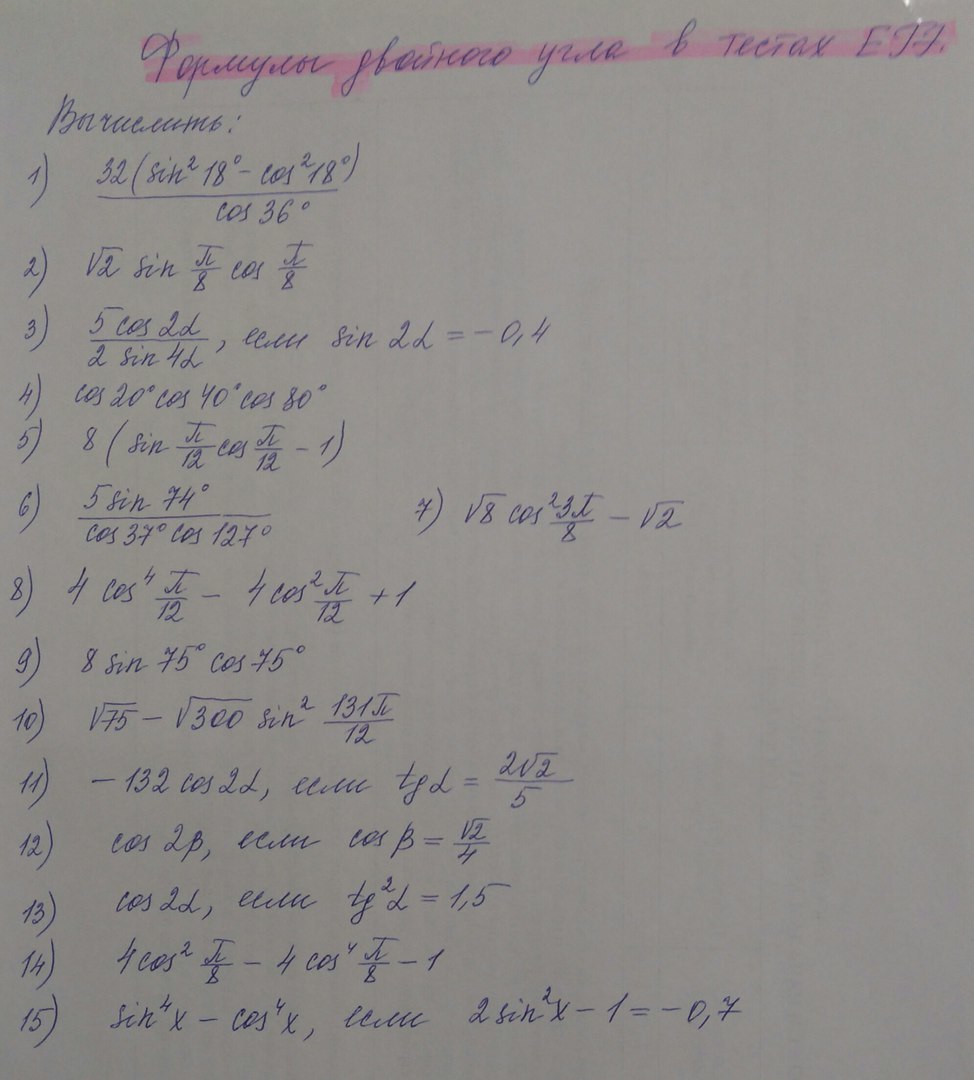 Формулы двойного угла в тестах ЕГЭ.
Вычислить:
1) 32(sin²18° - cos²18°) / cos 36°
2) √2 sin π/8 cos π/8
3) 5 cos 2α / 2 sin 4α, если sin 2α = -0,4
4) cos 20° cos 40° cos 80°
5) 8 ( sin π/12 cos π/12 - 1)
6) 5 sin 74° / cos 37° cos 127° 7) √8 cos² 3π/8 - √2
8) 4 cos⁴ π/12 - 4 cos² π/12 + 1
9) 8 sin 75° cos 75°
10) √75 - √300 sin² 131π/12
11) -132 cos 2α, если tg α = 2√2/5
12) cos 2β, если cos β = √2/4
13) cos 2α, если tg²α = 1,5
14) 4cos² π/8 - 4 cos⁴ π/8 - 1
15) sin⁴x - cos⁴x, если 2 sin²x - 1 = -0,7